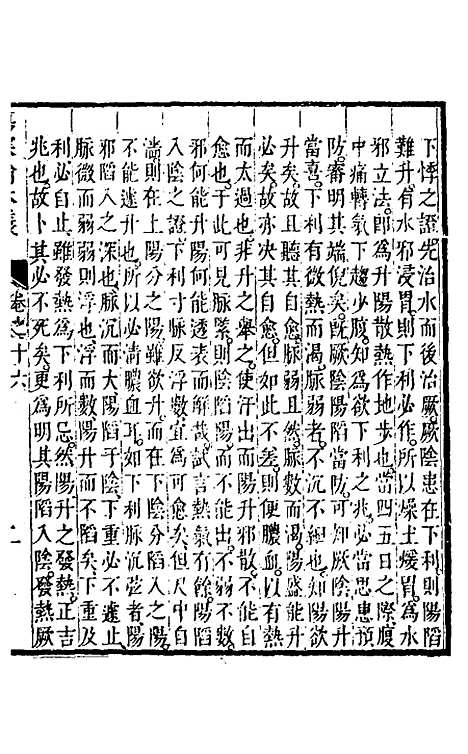 下悸之證先治水而後治厥厥陰患在下利則陽陷
難升有水邪浸胃則下利必作所以燥土煖胃爲水
邪立法卽爲升陽散熱作地步也當四五日之際腹
中痛轉氣下趨少腹知爲欲下利之兆必當思患預
防審明其端倪矣旣厥陰陽陷當防可知厥陰陽升
當喜下利有微熱而渴脈弱者不沉不細也如陽欲
升矣故且聽其自愈脈弱且然脈數而渴陽盛
必矣故亦決其自愈但如此不差則便膿血以有熱
而太過也非升之舉之使汗出而陽升邪散不能自
愈也于此可見脈緊則陰陷陽而不能出不弱不數
邪何能升陽何能發表而解哉試言熱有餘陽陷
入陰之證下利寸脈反浮數宜爲可愈矣但尺中自
濇則在上陽分之陽雖欲升而在下陰分陷入之陽
不能遽升也所以必淸膿血耳如下利脈沉弦者陽
邪陷入之深也脈沉而大陽陷于陰下重必不遽止
脈微而弱弱則浮也浮而數陽升而不陷矣下重及
利必自止雖發熱爲下利所忌然陽升之發熱正吉
兆也故卜其必不死矣更爲明其陽陷入陰發熱厥
卷之十六